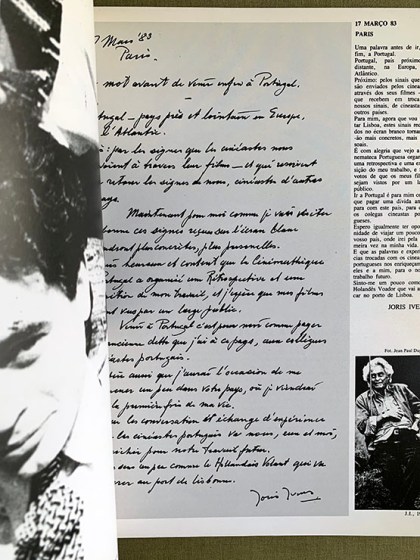 7 Mars '83
Paris.
mot avant de venir enfin à Portugal.
tugal – pays près et lointain en Europe,
l'Atlantic.
: par les signes que les cinéastes nous
voient à travers leur films – et qui reçoivent
retour les signes de nous, cinéastes d'autres
Maintenant pour moi comme je vais visiter
bonne ces signes reçus sur l'écran blanc
ndront plus concrètes, plus personnelles.
heureux et content que la Cinémathèque
tugal a organisé un Rétrospective et une
sition de mon travail, et j'espère que mes films
t vus par un large public.
Venir à Portugal c'est pour moi comme payer
ancienne dette que j'ai à ce pays, aux collègues
éastes portugais.
aussi que j'aurai l'occasion de me
ener un peu dans votre pays, où je viendrai
la première fois de ma vie.
les conversations et l'échange d'expérience
les cinéastes portugais va nous, eux et moi,
richir pour notre travail futur.
sens un peu comme le Hollandais Volant qui va
rer au port de Lisbonne.
Joris Ivens
17 MARÇO 83
PARIS
Uma palavra antes de ir,
fim, a Portugal.
Portugal, país próximo
distante, na Europa,
Atlântico.
Próximo: pelos sinais que
são enviados pelos cineas
através dos seus filmes –
que recebem em troca
nossos sinais, de cineastas
outros países.
Para mim, agora que vou
tar Lisboa, estes sinais rec
dos no écran branco tornam
-ão mais concretos, mais
soais.
É com alegria que vejo a
nemateca Portuguesa organi
uma retrospectiva e uma ex
sição do meu trabalho, e
votos de que os meus film
sejam vistos por um la
público.
Ir a Portugal é para mim co
que pagar uma dívida ant
para com este país, para c
os colegas cineastas por
gueses.
Espero igualmente ter opo
nidade de viajar um pouco
vosso país, onde irei pela
meira vez na minha vida.
E que as palavras e experi
cias trocadas com os cineas
portugueses nos enriqueçam
eles e a mim, para o no
trabalho futuro.
Sinto-me um pouco como
Holandês Voador que vai a
car no porto de Lisboa.
JORIS IVE
Fot. Jean Paul Du
J.I.,